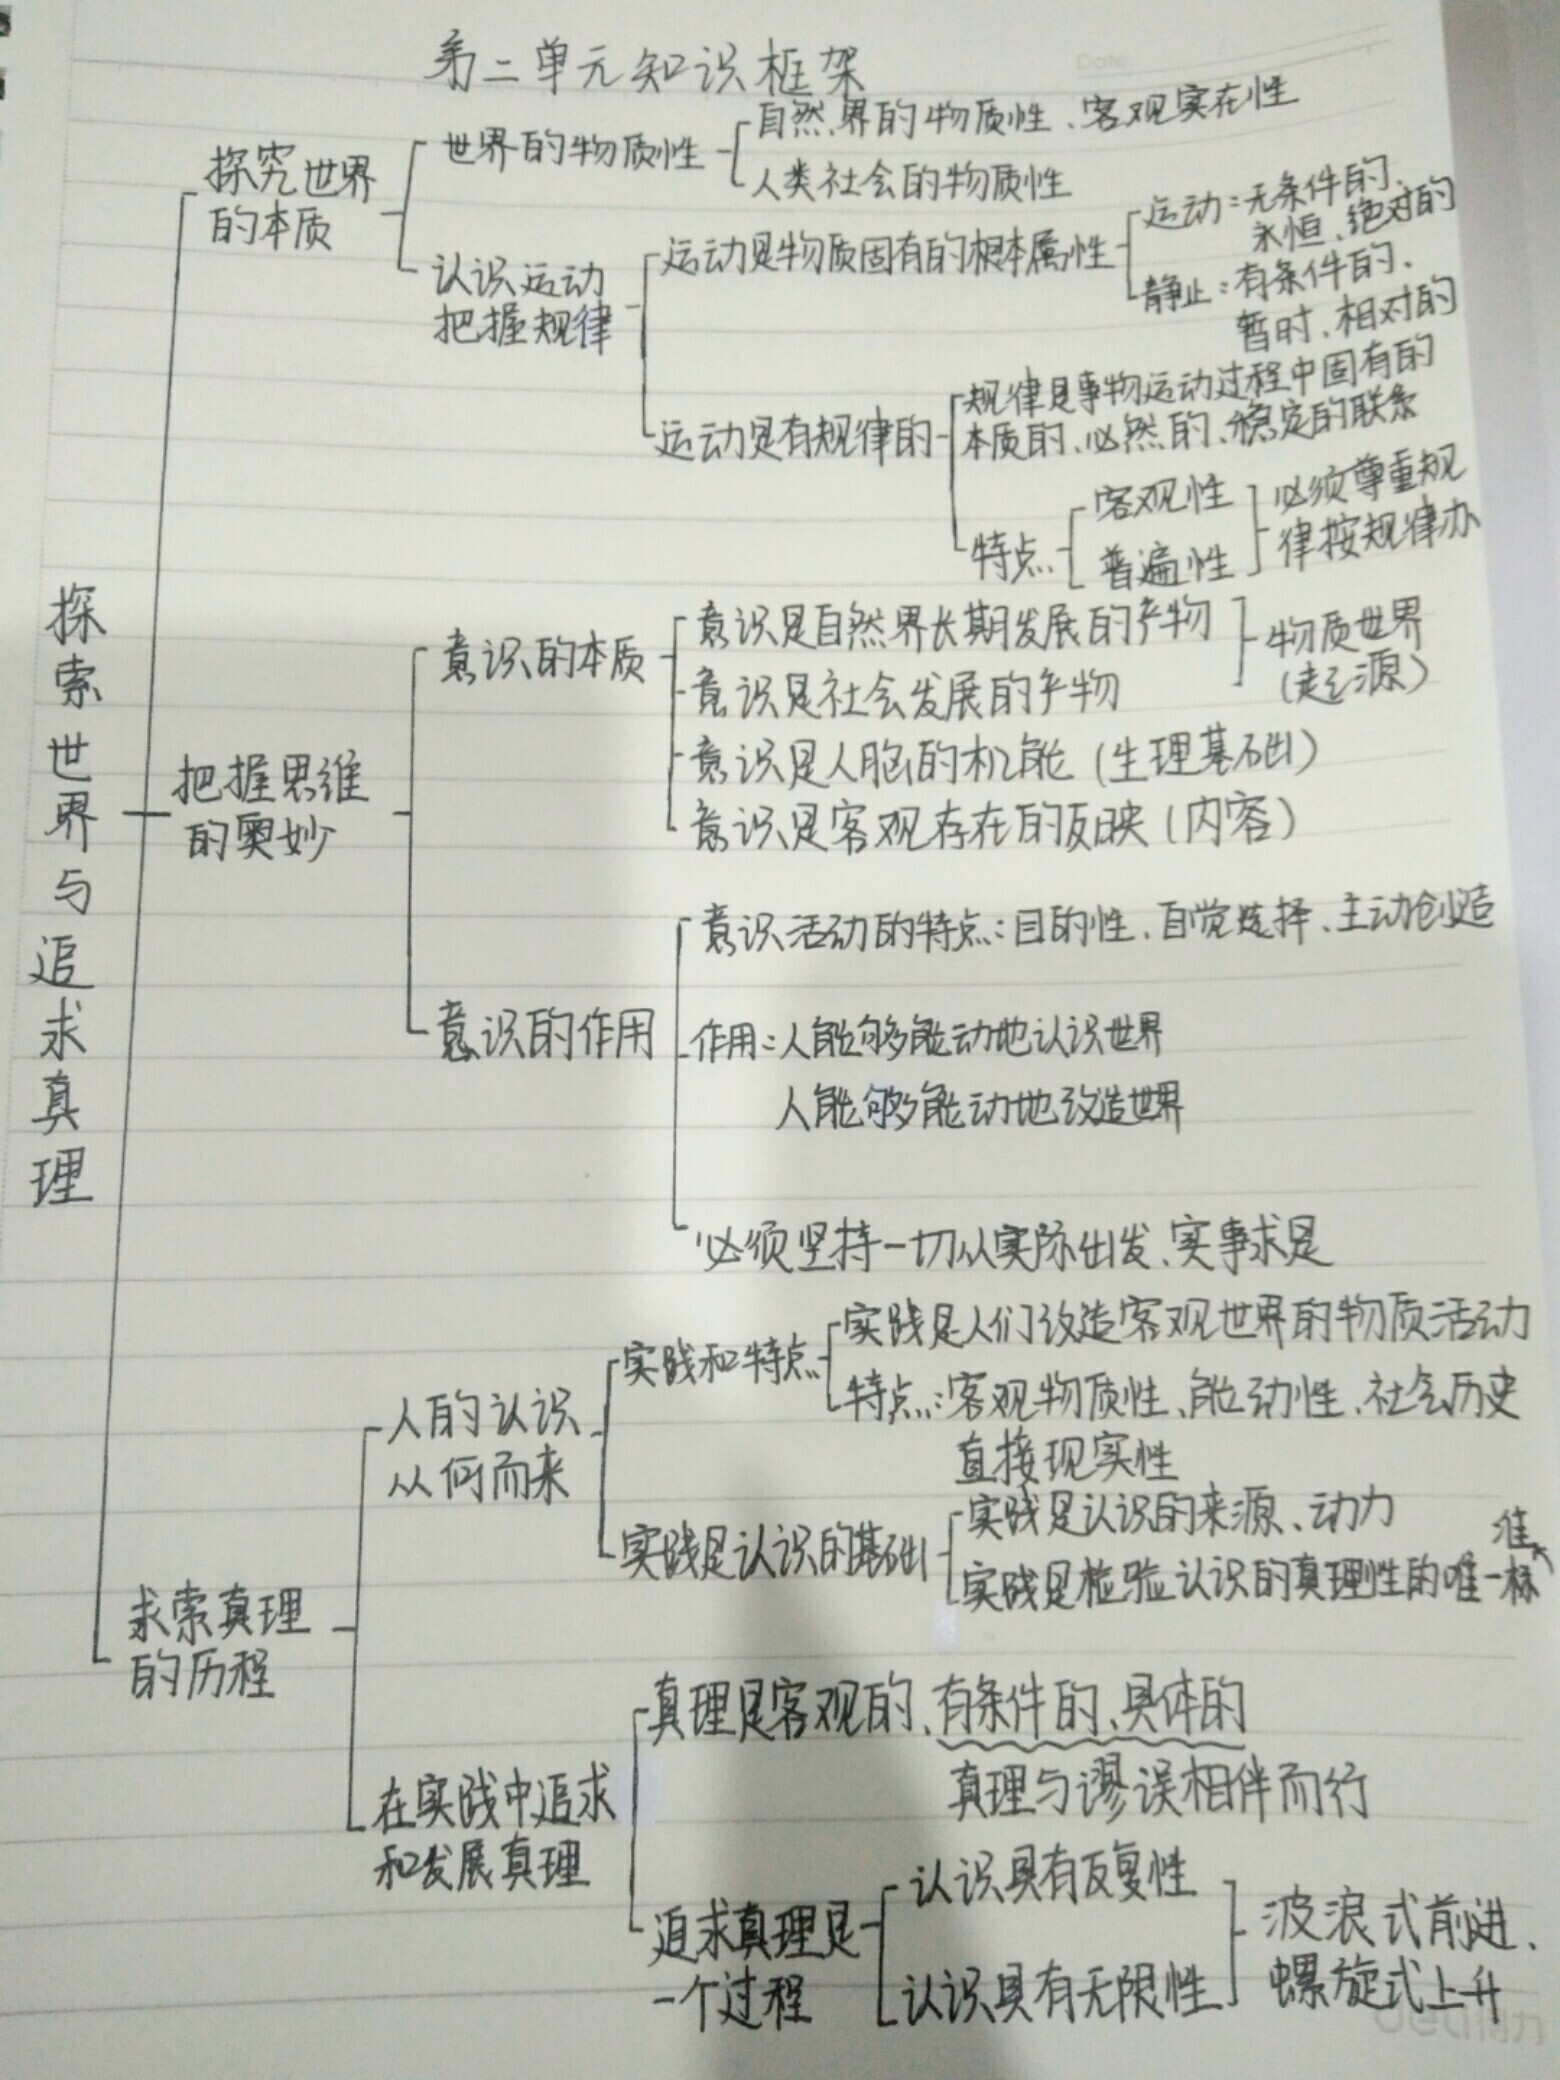 第二单元知识框架
探索世界与追求真理
探究世界
的本质
世界的物质性
自然界的物质性、客观实在性
人类社会的物质性
认识运动
把握规律
运动是物质固有的根本属性
运动:无条件的、
永恒、绝对的
静止:有条件的、
暂时、相对的
运动是有规律的
规律是事物运动过程中固有的
本质的、必然的、稳定的联系
特点
客观性
普遍性
必须尊重规
律按规律办
把握思维
的奥妙
意识的本质
意识是自然界长期发展的产物
意识是社会发展的产物
物质世界
(起源)
意识是人脑的机能(生理基础)
意识是客观存在的反映(内容)
意识的作用
意识活动的特点:目的性、自觉选择、主动创造
作用:人能够能动地认识世界
人能够能动地改造世界
必须坚持一切从实际出发、实事求是
求索真理
的历程
人的认识
从何而来
实践和特点
实践是人们改造客观世界的物质活动
特点:客观物质性、能动性、社会历史
直接现实性
实践是认识的基础
实践是认识的来源、动力
实践是检验认识的真理性的唯一标准
在实践中追求
和发展真理
真理是客观的、有条件的、具体的
真理与谬误相伴而行
追求真理是
一个过程
认识具有反复性
认识具有无限性
波浪式前进、
螺旋式上升
Date
deli得力